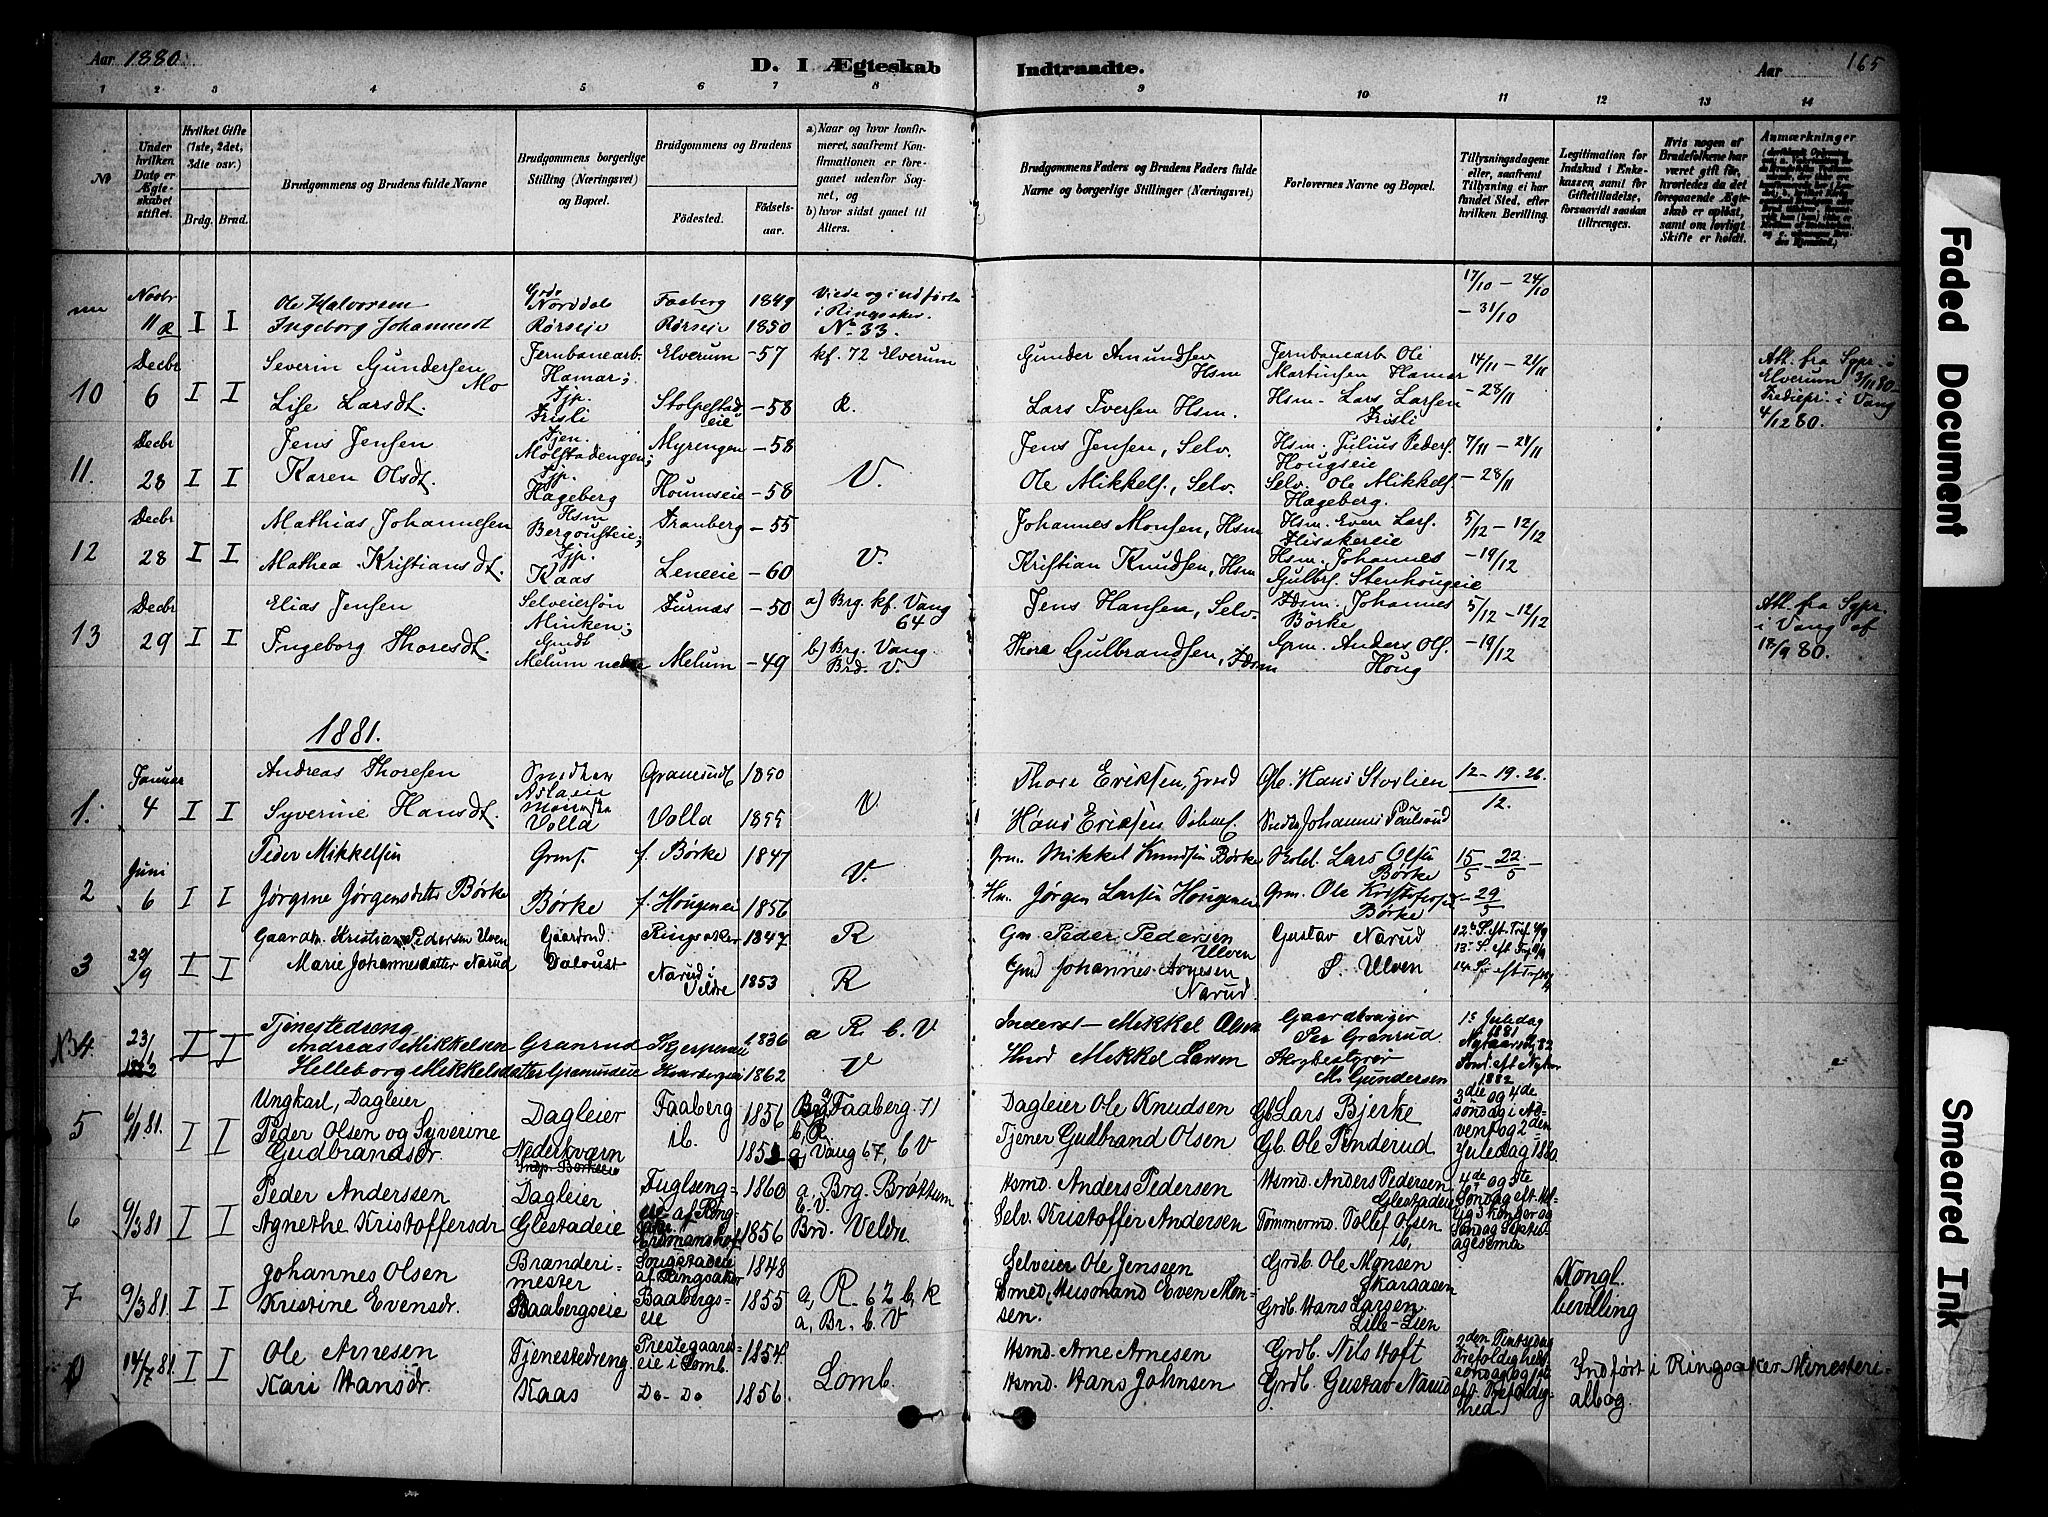 Aar 1880.
D. I Ægteskab Indtraadte.
Aar 165
1 2 3 4 5 6 7 8 9 10 11 12 13 14
No
Under hvilken Dato er Ægteskabet stiftet.
Hvilket Gifte (1ste, 2det, 3die osv.)
Brdg. Brud.
Brudgommens og Brudens fulde Navne
Brudgommens borgerlige Stilling (Næringsvei) og Bopæl.
Brudgommens og Brudens
Födested. Födselsaar.
a) Naar og hvor konfirmeret, saafremt Konfirmationen er foregaaet udenfor Sognet, og
b) hvor sidst gaaet til Alters.
Brudgommens Faders og Brudens Faders fulde Navne og borgerlige Stillinger (Næringsvei)
Forlovernes Navne og Bopæl.
Tillysningsdagene eller, saafremt Tillysning ei har fundet Sted, efter hvilken Bevilling.
Legitimation for Indskud i Enkekassen samt for Giftetilladelse, forsaavidt saadan tiltrænges.
Hvis nogen af Brudefolkene har været gift för, hvorledes da det foregaaende Ægteskab er oplöst, samt om lovligt Skifte er holdt.
Anmærkninger
Novbr 11 R I I
Ole Halvorsen Norddal Faaberg 1849 Viede og indførte i Ringsaker No 33. 17/10 - 24/10 - 31/10
Ingeborg Johannesdt Rørseie Rørseie 1850
10 Decbr 6 I I
Severin Gundersen Mo Jernbanearb. Hamar; Elverum -57 kf. 72 Elverum Gunder Amundsen Hsm Jernbanearb Ole Martinsen Hamar 14/11 - 21/11 - 28/11 Att. fra Sgpr. i Elverum 3/11 80.
Lise Larsdt. Tjp. Frisli Stolpestadeie -58 R. Lars Iversen Hsm. Hsm. Lars Larsen Frisli i Vang 4/12 80.
11. Decbr 28 I I
Jens Jensen Tjen. Molstadengen; Myrengen -58 V. Jens Jensen, Selv. Hsm. Julius Peders. Hougseie 7/11 - 21/11 - 28/11
Karen Olsdt. Tjp. Hageberg Houmseie -58 Ole Mikkels., Selv. Selv. Ole Mikkels. Hageberg.
12 Decbr 28 I I
Mathias Johannesen Hsm Bergousteie; Tranberg -55 V. Johannes Monsen, Hsm Hsm. Even Lars. Flisakereie 5/12 - 12/12 - 19/12
Mathea Kristiansdt. Tjp. Kaas Leneeie -60 Kristian Knudsen, Hsm Hsm. Johannes Gulbrs. Stenhougeie
13 Decbr 29 I I
Elias Jensen Selveiersøn Minken; Furnæs -50 a) Brg. kf. Vang 64 Jens Hansen, Selv. Johannes Børke 5/12 - 12/12 - 19/12 Att. fra Sgpr. i Vang af 18/9 80.
Ingeborg Thoresdt. Gmdt Melum nedre Melum -49 b) Brg. Vang. Brd. V. Thore Gulbrandsen, Grm. Anders Ols. Houg
1881.
1. Januar 4 I I
Andreas Thoresen Granerudt 1850 V. Thore Eriksen, Hans Storlien 12 - 19. 26. 12.
Syverine Hansdt. Volla Volla 1855 Hans Eriksen Johannes Paulsrud
2 Juni 6 I I
Peder Mikkelsen Grms. f. Børke 1847 V. Grm. Mikkel Knudsen Børke Kold. Lars Olsen Børke 15/5 - 22/5 - 29/5
Jørgine Jørgensdatter Børke Børke f. Hougenei 1856 Hm. Jørgen Larsen Hougenei Grm. Ole Kristofersen Børke
3 29/9 I I
Gaardbr. Kristian Pedersen Ulven Ringsaker 1847 R Gm. Peder Pedersen Ulven Gustav Narud
Marie Johannesdatter Narud Narud i Veldre 1853 R Gmd Johannes Arnesen Narud S. Ulven
No 4. 23/1 1882 I I
Tjenestedreng Andreas Mikkelsen Granrud 1836 a R. b. V Inderst - Mikkel Olsen Gaardbruger Per Granrud 1ste Juledag 1881 Nytaarsd. 82
Helleborg Mikkelsdatter Granrudeie 1862 V Hmd Mikkel Larsen Skogbestyrer M. Gundersen Sønd. eft Nytaar 1882
5 6/1 81. I I
Ungkarl, Dagleier Peder Olsen og Syverine Gudbrandsdr. Dagleier Nederkværn Faaberg ib. 1856 Brg. Faaberg 71 b, R a, Vang 67, b V Dagleier Ole Knudsen Gb. Lars Bjerke 3die og 4de søndag i Advent og 2den Juledag 1880.
Tjener Gudbrand Olsen Gb. Ole Penderud
6 9/3 81. I I
Peder Anderssen Dagleier Fuglsengeie af Ringsaker 1860 a, Brg. Brøttum b. V. Hsmd. Anders Pedersen Hsmd. Anders Pedersen Glestadeie
Agnethe Kristoffersdr. Glestadeie 1856 Brd. Veldre Selv. Kristoffer Andersen Tømmermd. Tollef Olsen ib,
7 9/3 81. I I
Johannes Olsen Brænderimester af Ringsaker 1848 a, R. 62 b, R Selveier Ole Jenssen Grdb. Ole Monsen Skaraasen Kongl. bevilling
Kristine Evensdr. Baabergseie Baabergseie 1855 a, Br. b. V Husmand Even Monsen. Grdb. Hans Larsen Lille-Lien
14/7 81. I I
Ole Arnesen Tjenestedreng Prestegaardseie i Lomb. 1854. Lomb. Hsmd. Arne Arnesen Grdb. Nils Hoft Indført i Ringsaker Ministerialbog
Kari Hansdr. Kaas Do - Do 1856. Hsmd. Hans Johnsen Grdb. Gustav Narud
Faded Document
Smeared Ink